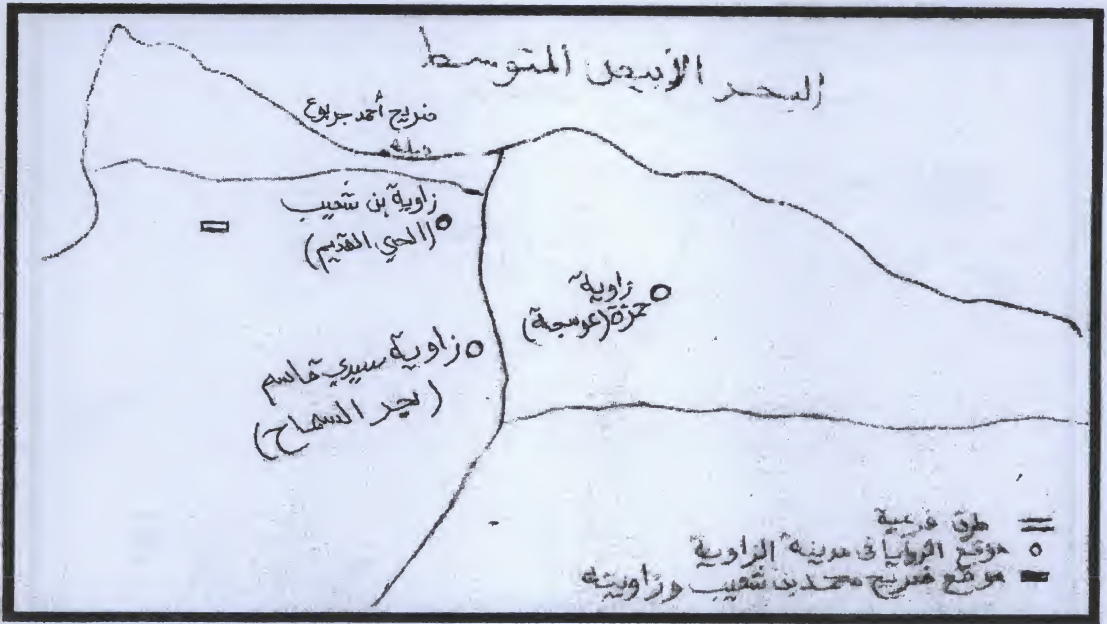 البحر الأبيض المتوسط
ضريح أحمد جربوع
ديلة
زاوية بن شعيب
(الحي القديم)
زاوية
حمزة (عوسجة)
زاوية سيدي قاسم
(بحر السماح)
طرق فرعية
موقع الزوايا في مدينة الزاوية
موقع ضريح محمد بن شعيب وزاويته